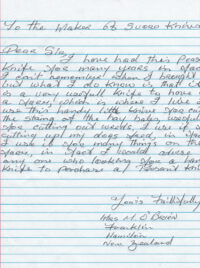 To the Maker of Svord Knives
Dear Sir,
I have had this Peasant
Knife for many years in fact
I can't remember when I brought it
but what I do know is that it
is a very usefull knife to have on
a farm, which is where I live I
use this handy little knife for cutting
the string of the hay bales, usefull
for cutting out weeds, I use it for
cutting up my dogs food, in fact
I use it for many things on the
farm, in fact I would advise
any one who looking for a handy
Knife to purchase a Peasant Knife
Yours Faithfully
Mrs M. O'Brien
Franklin
Hamilton
New Zealand